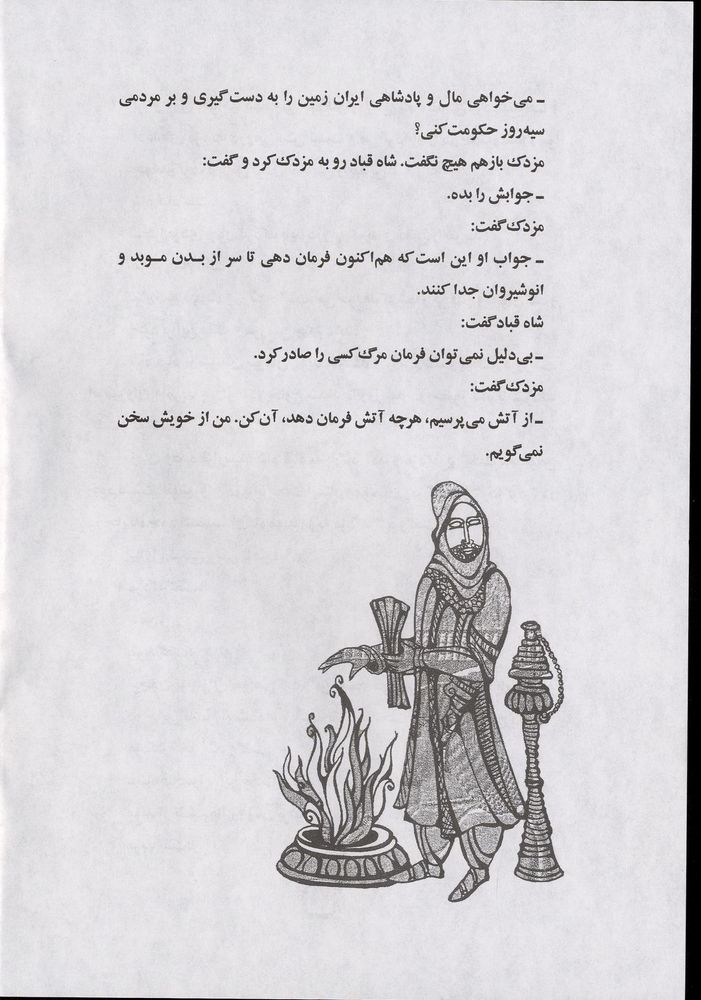 ـ می‌خواهی مال و پادشاهی ایران زمین را به دست‌گیری و بر مردمی
سیه‌روز حکومت‌کنی؟
مزدک بازهم هیچ نگفت. شاه قباد رو به مزدک‌کرد و گفت:
ـ جوابش را بده.
مزدک‌گفت:
ـ جواب او این است‌که هم‌اکنون فرمان دهی تا سر از بـدن مـوبد و
انوشیروان جدا کنند.
شاه قبادگفت:
ـ بی‌دلیل نمی‌توان فرمان مرگ‌کسی را صادرکرد.
مزدک‌گفت:
ـ از آتش می‌پرسیم، هرچه آتش فرمان دهد، آن‌کن. من از خویش سخن
نمی‌گویم.